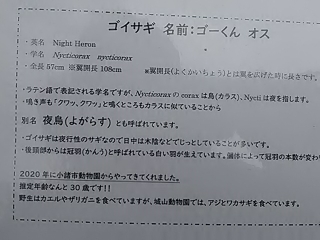 ゴイサギ 名前：ゴーくん オス
・英名 Night Heron
・学名 Nycticorax nycticorax
・全長 57cm ※翼開長 108cm ※翼開長(よくかいちょう)とは翼を広げた時に長さです。
・ラテン語で表記される学名ですが、Nycticorax の corax は鳥(カラス)、Nycti は夜を指します。
・鳴き声も「クワッ、クワッ」と鳴くところもカラスに似ていることから
別名 夜烏(よがらす) とも呼ばれています。
・ゴイサギは夜行性のサギなので日中は木陰などでじっとしていることが多いです。
・後頭部からは冠羽(かんう)と呼ばれている白い羽が生えています。個体によって冠羽の本数が変わ
2020年に小諸市動物園からやってきてくれました。
推定年齢なんと30歳です！！
野生はカエルやザリガニを食べていますが、城山動物園では、アジとワカサギを食べています。